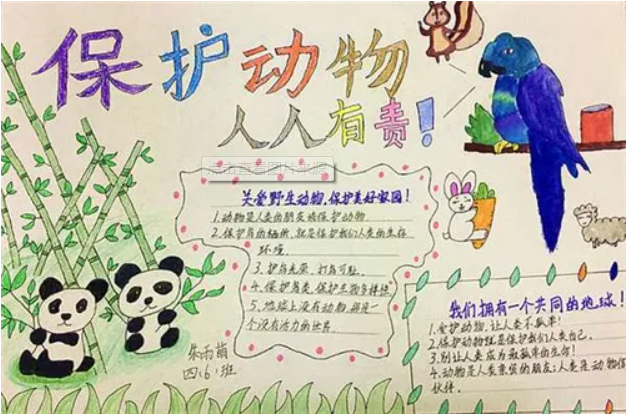 保护动物
人人有责!
关爱野生动物,保护美好家园!
1.动物是人类的朋友请保护动物
2.保护鸟的栖所,就是保护我们人类的生存
环境。
3、护鸟光荣、打鸟可耻。
4、保护鸟类,保护生物多样性
5、地球上没有动物,将是一
个没有活力的世界
朱雨萌
四(6)班
我们拥有一个共同的地球!
1.爱护动物,让人类不孤单!
2.保护动物就是保护我们人类自己.
3.别让人类成为最孤单的生命!
4.动物是人类亲密的朋友;人类是动物信
伙伴.